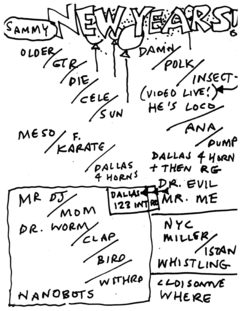 SAMMY
NEW YEARS!
OLDER/
GTR/
DIE/
CELE/
SUN
DAMN/
POLK/
INSECT-
(VIDEO LIVE!)
HE'S LOCO/
ANA/
DUMP
MESO/F.
KARATE/
DALLAS
4 HORNS
DALLAS 4 HORN
+ THEN RG
DR. EVIL
MR. ME
DALLAS
122 INT RG
MR DJ/
MOM
DR. WORM/
CLAP/
BIRD/
WSTHRD
NANOBOTS
NYC
MILLER/
ISTAN
WHISTLING
CLOISONNE
WHERE